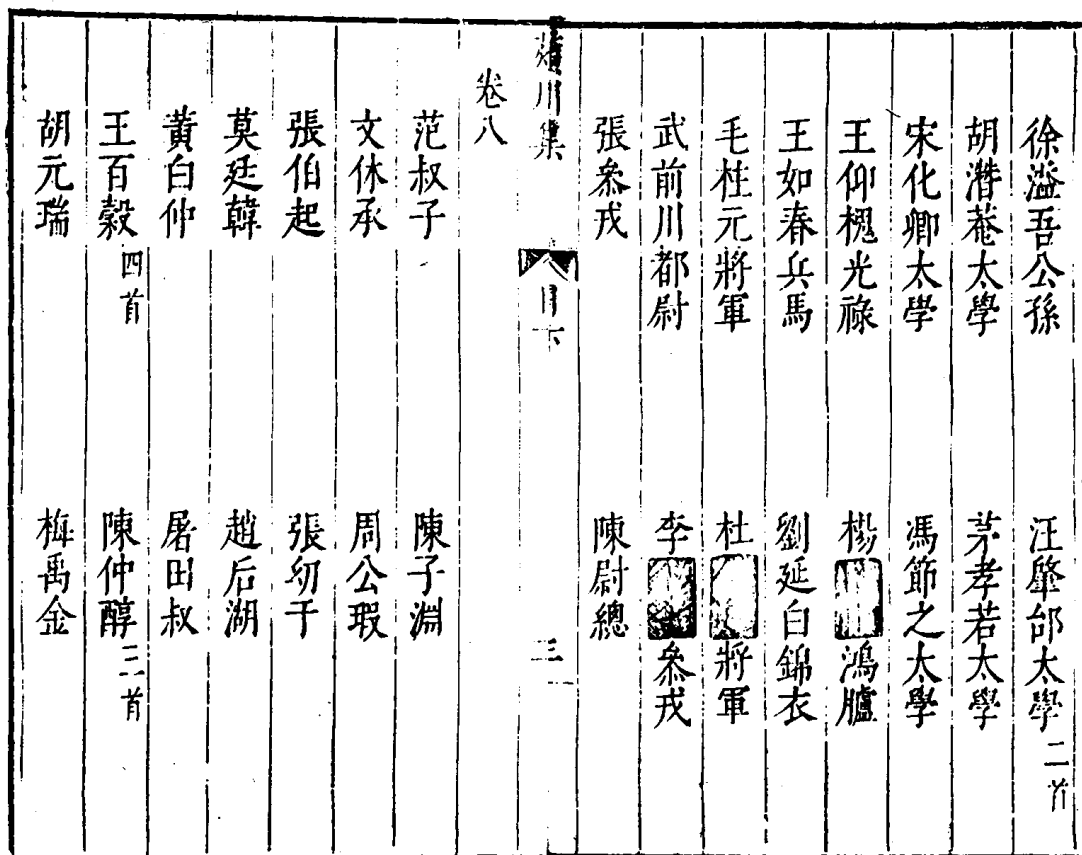 徐溢吾公孫　汪肇郃太學二首
胡濳菴太學　茅孝若太學
宋化卿太學　馮節之太學
王仰槐光祿　楊　鴻臚
王如春兵馬　劉延白錦衣
毛柱元將軍　杜　將軍
武前川都尉　李　叅戎
張叅戎　陳尉總
川集　目下　三
卷八
范叔子　陳子淵
文休承　周公瑕
張伯起　張㓜于
莫廷韓　趙后湖
黃白仲　屠田叔
王百穀四首　陳仲醇三首
胡元瑞　梅禹金